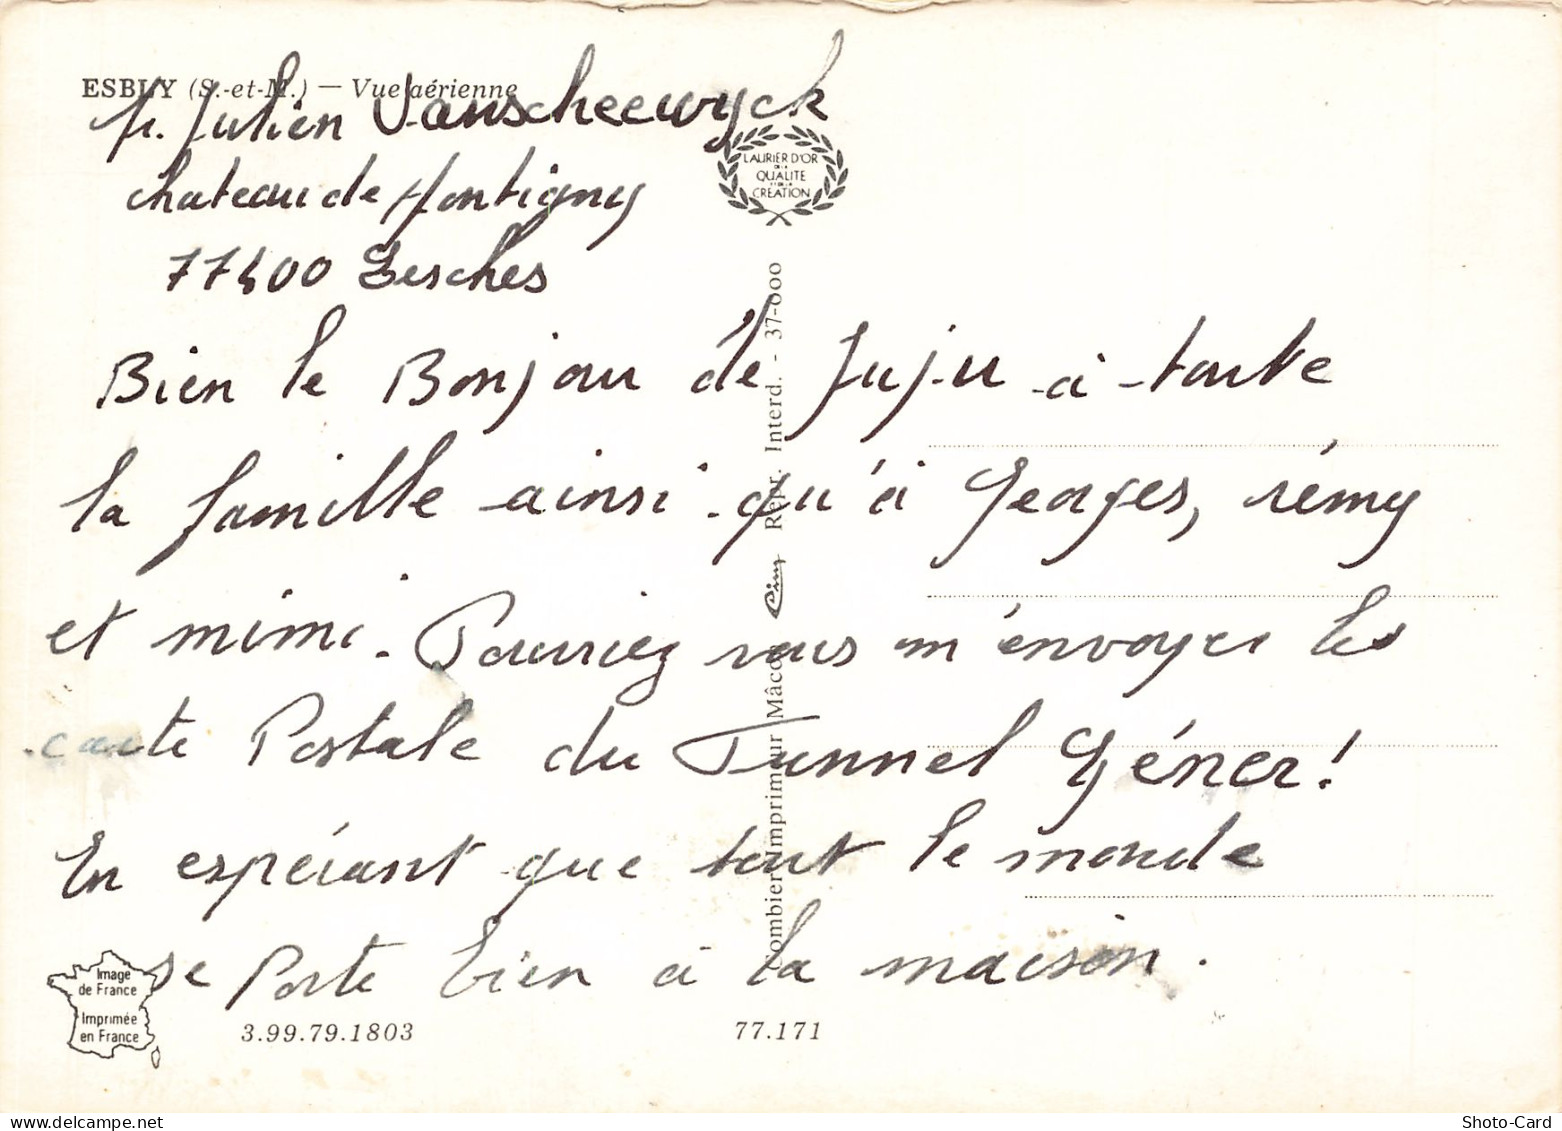 ESBLY (S.-et-M.) — Vue aérienne
Julien Vanscheewyck
chateau de Montigny
77400 Lesches
LAURIER D'OR
DE LA
QUALITE
ET DE LA
CREATION
Bien le Bonjour de Juju à toute
la famille ainsi qu'à Georges, rémy
et mimi. Pourriez vous m'envoyer la
carte Postale du Tunnel Géner!
En espérant que tout le monde
se Porte bien à la maison.
Combier Imprimeur Mâcon Cim Repr. Interd. - 37-000
Image
de France
Imprimée
en France
3.99.79.1803
77.171
delcampe.net
Shoto-Card